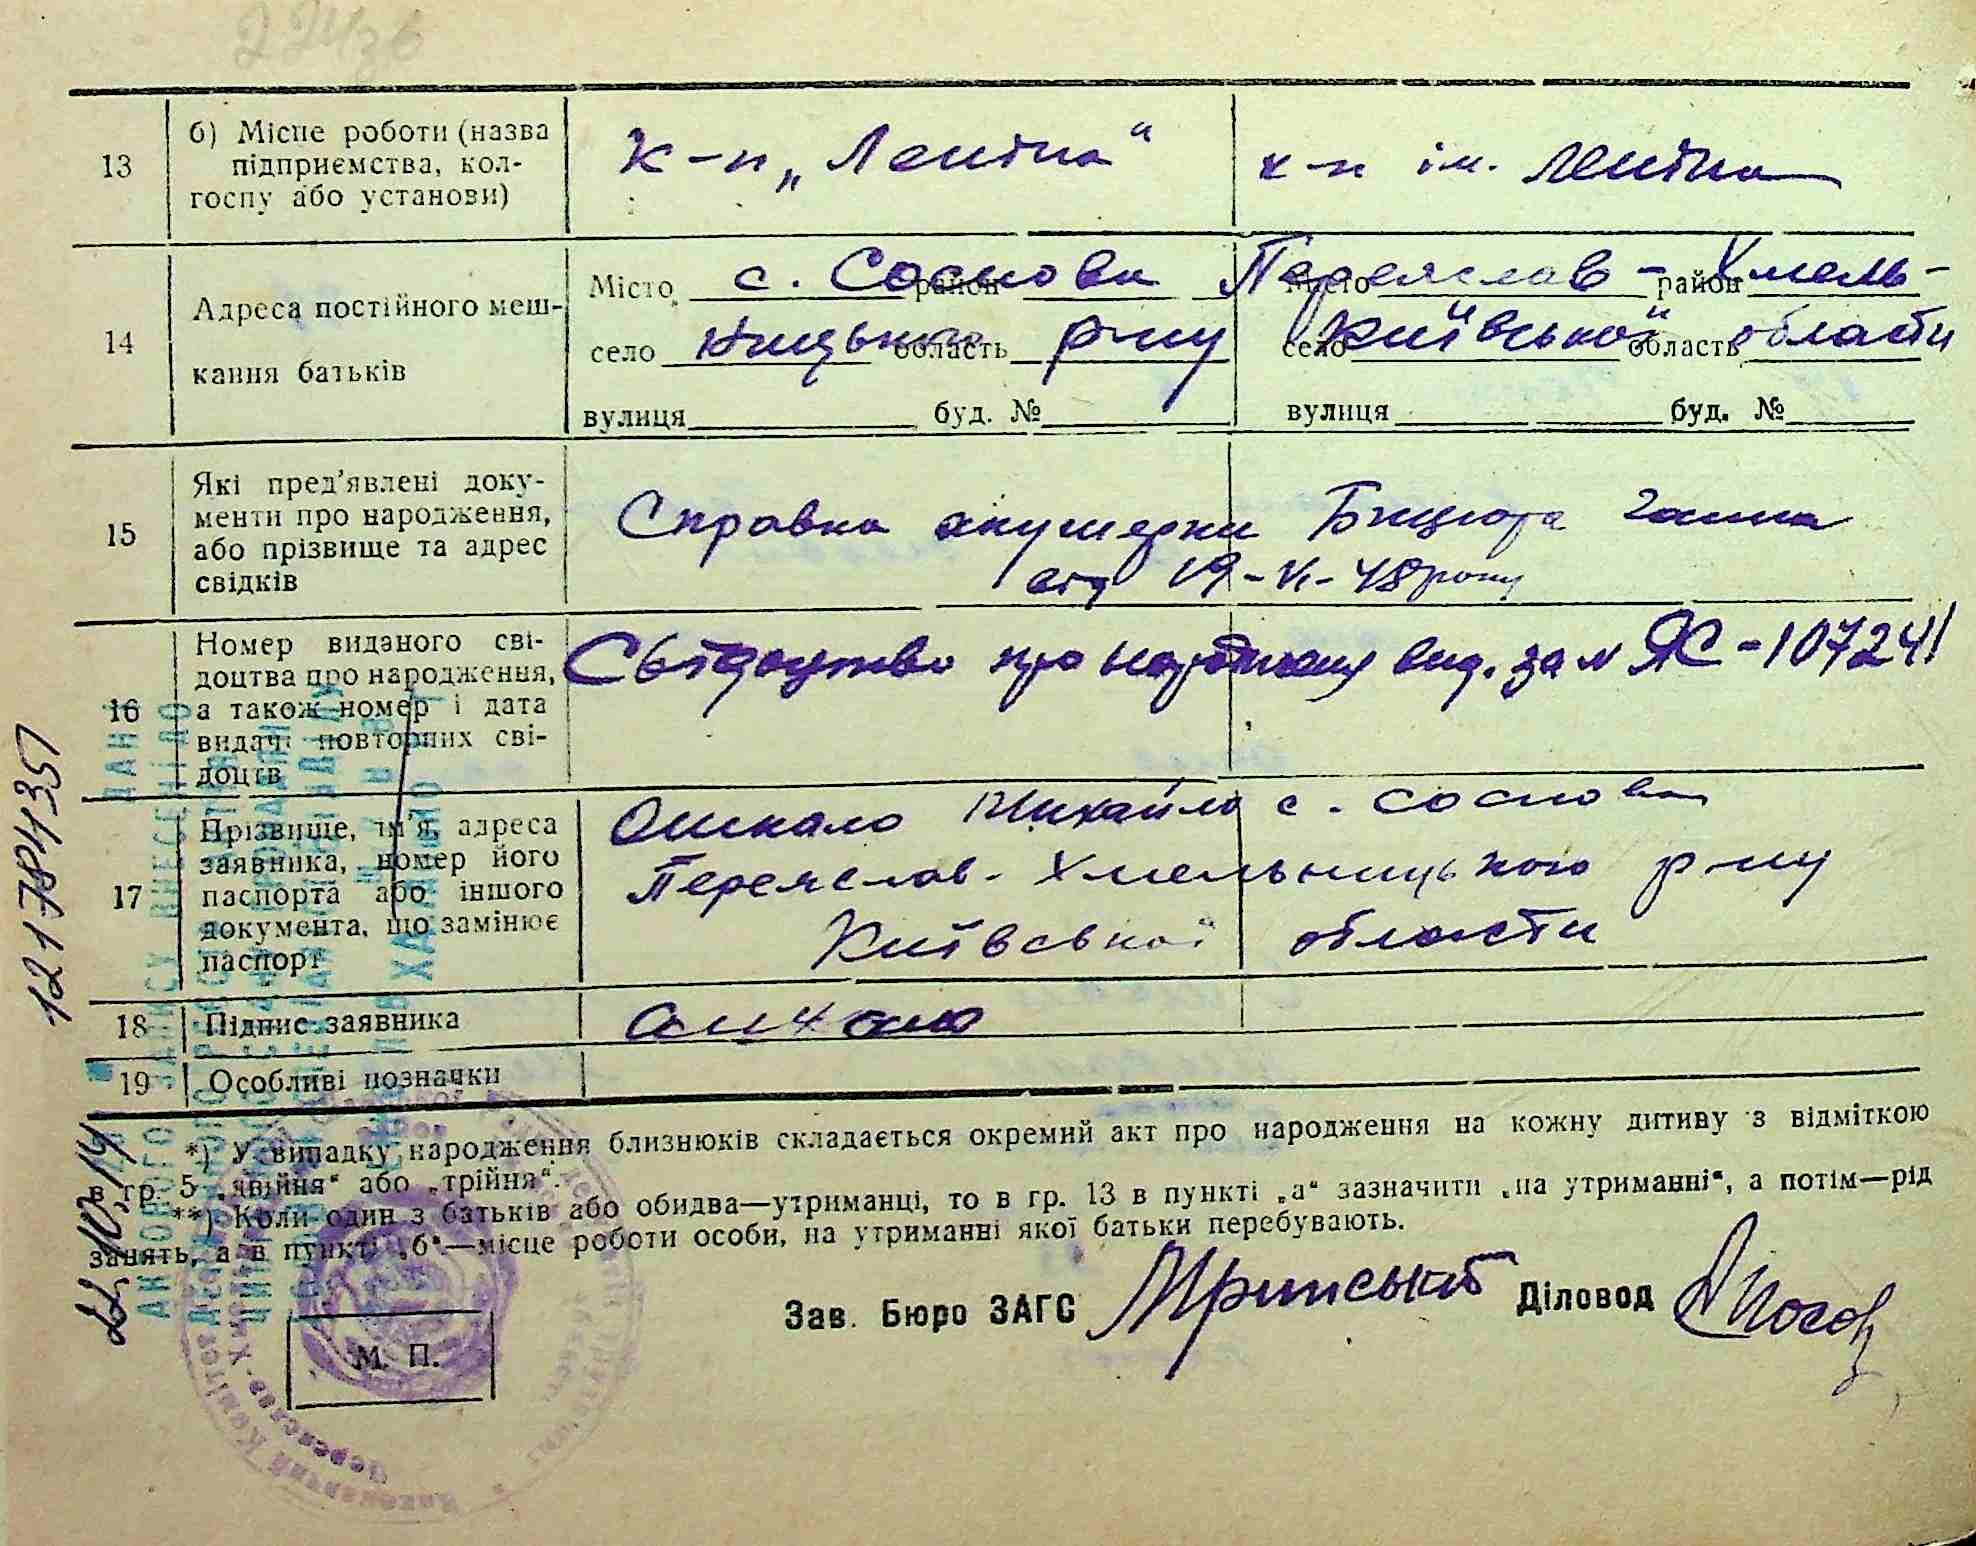 224зв
13
б) Місце роботи (назва
підприємства, кол-
госпу або установи)
К-п „Леніна“
к-п ім. Леніна
14
Адреса постійного меш-
кання батьків
Місто с. Соснова район Переяслав-Хмель-
Місто район
село ницького область р-ну Київської області
село область
вулиця буд. №
вулиця буд. №
15
Які пред'явлені доку-
менти про народження,
або прізвище та адрес
свідків
Справка акушерки Бицюра Ганна
від 19-VI-48 року
16
Номер виданого сві-
доцтва про народження,
а також номер і дата
видачі повторних сві-
доцтв
Свідоцтво про народження вид. за № ЯС-107241
17
Прізвище, ім'я, адреса
заявника, номер його
паспорта або іншого
документа, що замінює
паспорт
Ошкало Михайло с. Соснова
Переяслав-Хмельницького р-ну
Київської області
18
Підпис заявника
Ошкало
19
Особливі позначки
*) У випадку народження близнюків складається окремий акт про народження на кожну дитину з відміткою
в гр. 5 „двійня“ або „трійня“.
**) Коли один з батьків або обидва—утриманці, то в гр. 13 в пункті „а“ зазначити „на утриманні“, а потім—рід
занять, а в пункті „б“—місце роботи особи, на утриманні якої батьки перебувають.
Зав. Бюро ЗАГС
Діловод
М. П.
121784357
ДАНІ
АКТОВОГО ЗАПИСУ ВНЕСЕНІ ДО